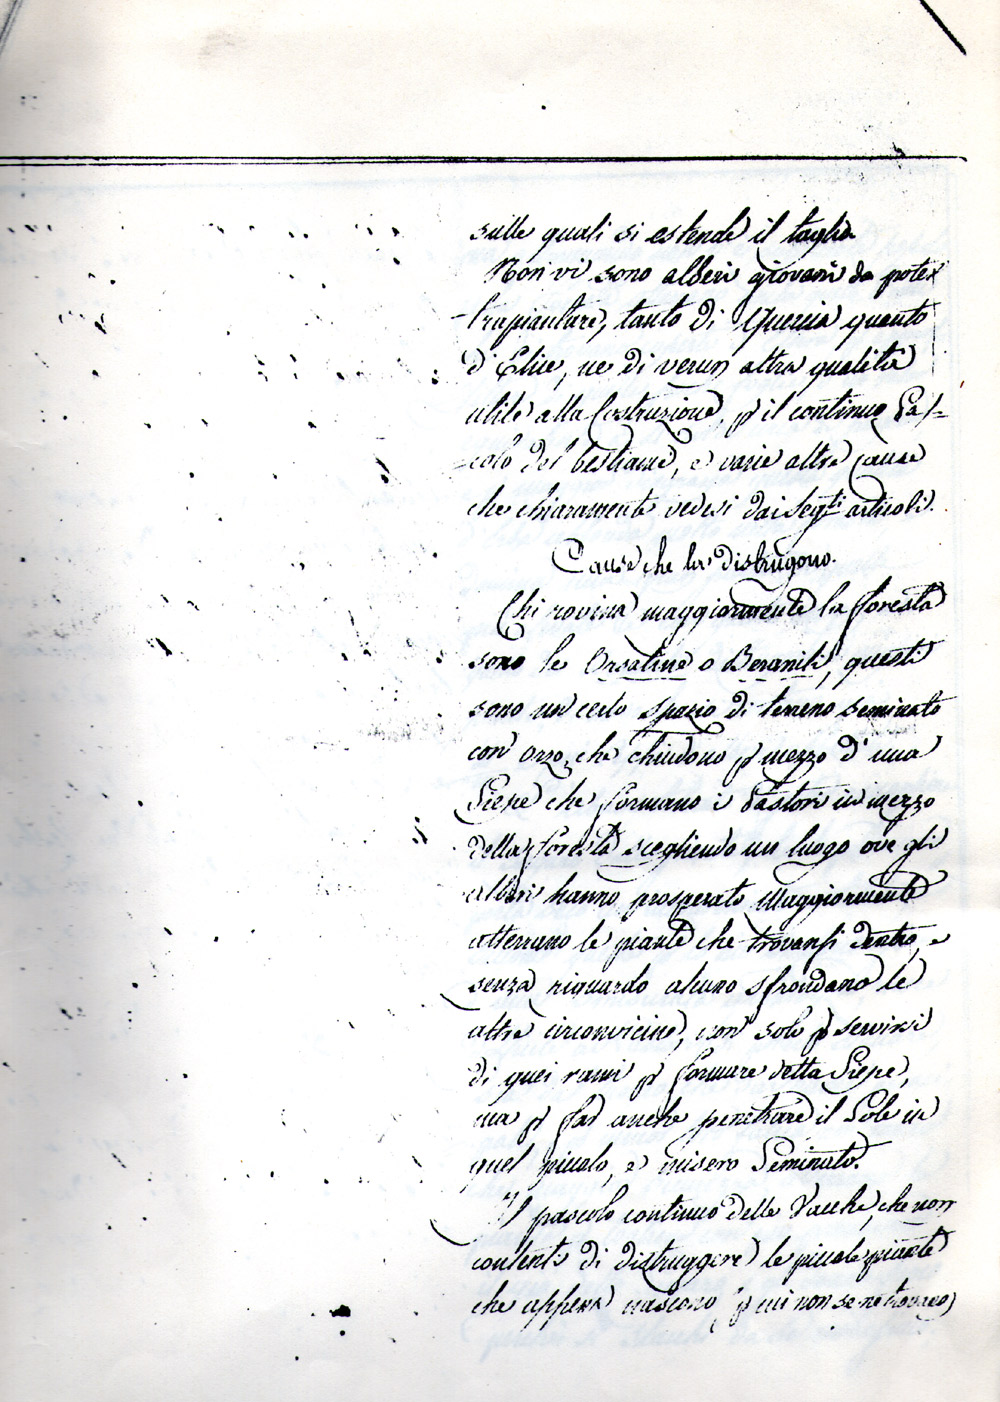 sulle quali si estende il taglio
Non vi sono alberi giovani da poter
trapiantare, tanto di Quercia quanto
d'Elice, ne di verun altra qualità
utile alla Costruzione, p il continuo Pas=
=colo del bestiame, e varie altre cause
che chiaramente vedesi dai segti articoli.
Cause che la distrugono.
Chi rovina maggiormente la foresta
sono le Orsatine o Beranili, questi
sono un certo spazio di terreno seminato
con Orzo, che chiudono p mezzo d'una
Siepe che formano i Pastori in mezzo
della foresta scegliendo un luogo ove gli
alberi hanno prosperato Maggiormente
atterrano le piante che trovansi dentro, e
senza riguardo alcuno sfrondano le
altre circonvicine, non solo p servirsi
di quei rami p formare detta Siepe,
ma p far anche penetrare il Sole in
quel piccolo, e misero Seminato.
Il pascolo continuo delle Vacche, che non
contenti di distruggere le piccole piante
che appena nascono, (p cui non se ne trovano)